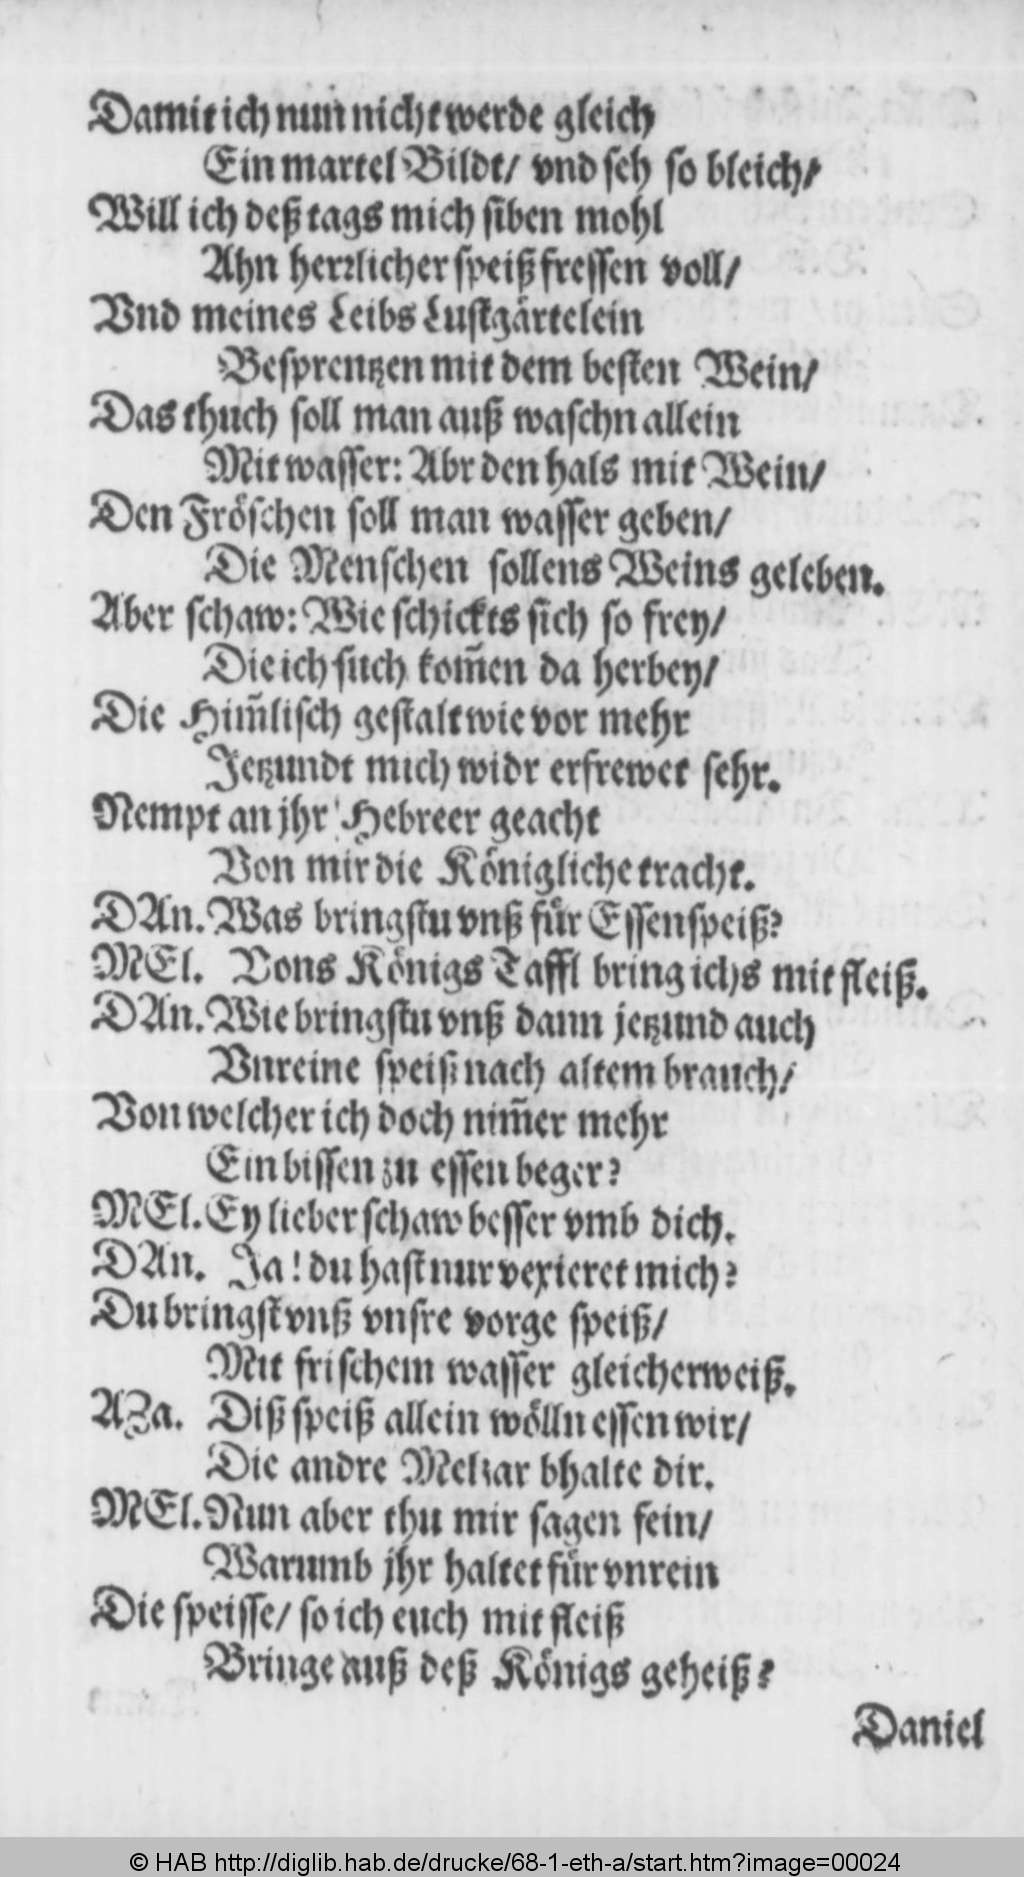 Damit ich nun nicht werde gleich
Ein martel Bildt/ vnd seh so bleich/
Will ich deß tags mich siben mohl
Ahn herrlicher speiß fressen voll/
Vnd meines Leibs Lustgärtelein
Besprentzen mit dem besten Wein/
Das thuch soll man auß waschn allein
Mit wasser: Abr den hals mit Wein/
Den Fröschen soll man wasser geben/
Die Menschen sollens Weins geleben.
Aber schaw: Wie schickts sich so frey/
Die ich such kom̃en da herbey/
Die Him̃lisch gestalt wie vor mehr
Jetzundt mich widr erfrewet sehr.
Nempt an jhr Hebreer geacht
Von mir die Königliche tracht.
DAn. Was bringstu vnß für Essenspeiß?
MEl. Vons Königs Taffl bring ichs mit fleiß.
DAn. Wie bringstu vnß dann jetzund auch
Vnreine speiß nach altem brauch/
Von welcher ich doch nim̃er mehr
Ein bissen zu essen beger?
MEl. Ey lieber schaw besser vmb dich.
DAn. Ja! du hast nur vexieret mich?
Du bringst vnß vnsre vorge speiß/
Mit frischem wasser gleicherweiß.
AZa. Diß speiß allein wölln essen wir/
Die andre Melzar bhalte dir.
MEl. Nun aber thu mir sagen fein/
Warumb jhr haltet für vnrein
Die speisse/ so ich euch mit fleiß
Bringe auß deß Königs geheiß?
Daniel
© HAB http://diglib.hab.de/drucke/68-1-eth-a/start.htm?image=00024